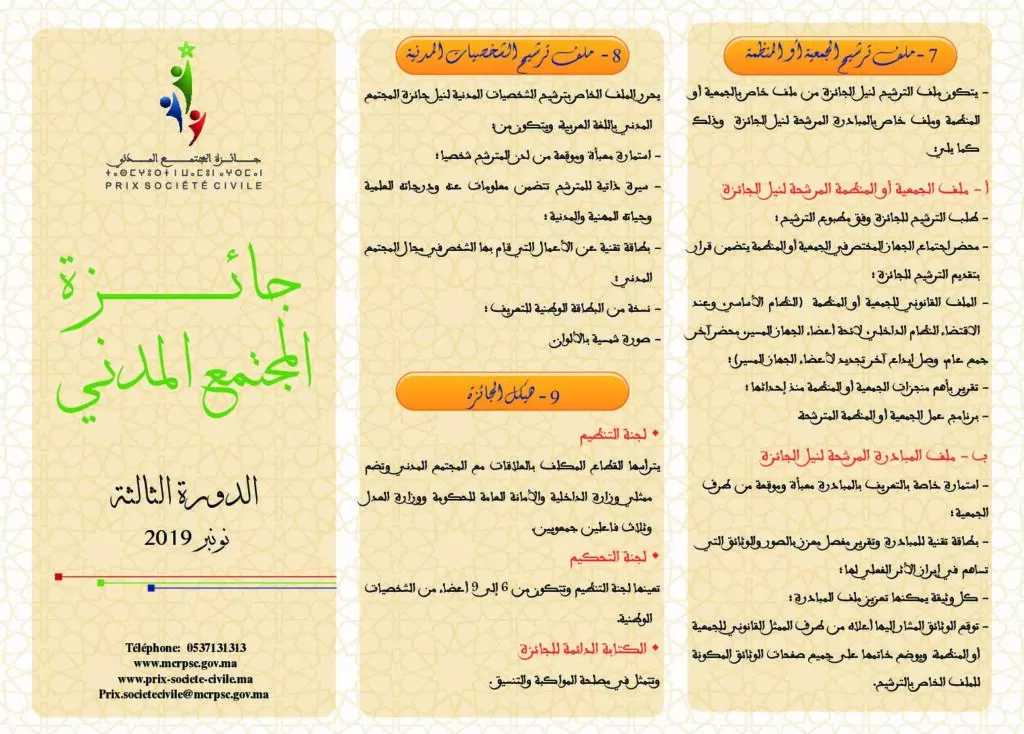 7 - ملف ترشيح الجمعية أو المنظمة
- يتكون ملف الترشيح لنيل الجائزة من ملف خاص بالجمعية أو
المنظمة وملف خاص بالمبادرة المرشحة لنيل الجائزة وذلك
كما يلي:
أ - ملف الجمعية أو المنظمة المرشحة لنيل الجائزة
- طلب الترشيح للجائزة وفق مطبوع الترشيح ؛
- محضر اجتماع الجهاز المختص في الجمعية أو المنظمة يتضمن قرار
بتقديم الترشيح للجائزة ؛
- الملف القانوني للجمعية أو المنظمة (النظام الأساسي وعند
الاقتضاء النظام الداخلي، لائحة أعضاء الجهاز المسير، محضر آخر
جمع عام، وصل إيداع آخر تجديد لأعضاء الجهاز المسير)؛
- تقرير بأهم منجزات الجمعية أو المنظمة منذ إحداثها ؛
- برنامج عمل الجمعية أو المنظمة المترشحة
ب - ملف المبادرة المرشحة لنيل الجائزة
- استمارة خاصة بالتعريف بالمبادرة معبأة وموقعة من طرف
الجمعية ؛
- بطاقة تقنية للمبادرة وتقرير مفصل معزز بالصور والوثائق التي
تساهم في إبراز الأثر الفعلي لها ؛
- كل وثيقة يمكنها تعزيز ملف المبادرة ؛
- توقع الوثائق المشار إليها أعلاه من طرف الممثل القانوني للجمعية
أو المنظمة ويوضع خاتمها على جميع صفحات الوثائق المكونة
للملف الخاص بالترشيح.
8 - ملف ترشيح الشخصيات المدنية
يحرر الملف الخاص بترشيح الشخصيات المدنية لنيل جائزة المجتمع
المدني باللغة العربية ويتكون من:
- استمارة معبأة وموقعة من لدن المترشح شخصيا ؛
- سيرة ذاتية للمترشح تتضمن معلومات عنه ودرجاته العلمية
وحياته المهنية والمدنية ؛
- بطاقة تقنية عن الأعمال التي قام بها الشخص في مجال المجتمع
المدني ؛
- نسخة من البطاقة الوطنية للتعريف ؛
- صورة شمسية بالألوان
9 - هيكل الجائزة
• لجنة التنظيم
يترأسها القطاع المكلف بالعلاقات مع المجتمع المدني وتضم
ممثلي وزارة الداخلية والأمانة العامة للحكومة ووزارة العدل
وثلاث فاعلين جمعويين.
• لجنة التحكيم
تعينها لجنة التنظيم وتتكون من 6 إلى 9 أعضاء من الشخصيات
الوطنية.
• الكتابة الدائمة للجائزة
وتتمثل في مصلحة المواكبة والتنسيق.
جائزة المجتمع المدني
PRIX SOCIÉTÉ CIVILE
جائزة
المجتمع المدني
الدورة الثالثة
نونبر 2019
Téléphone: 0537131313
www.mcrpsc.gov.ma
www.prix-societe-civile.ma
Prix.societecivile@mcrpsc.gov.ma